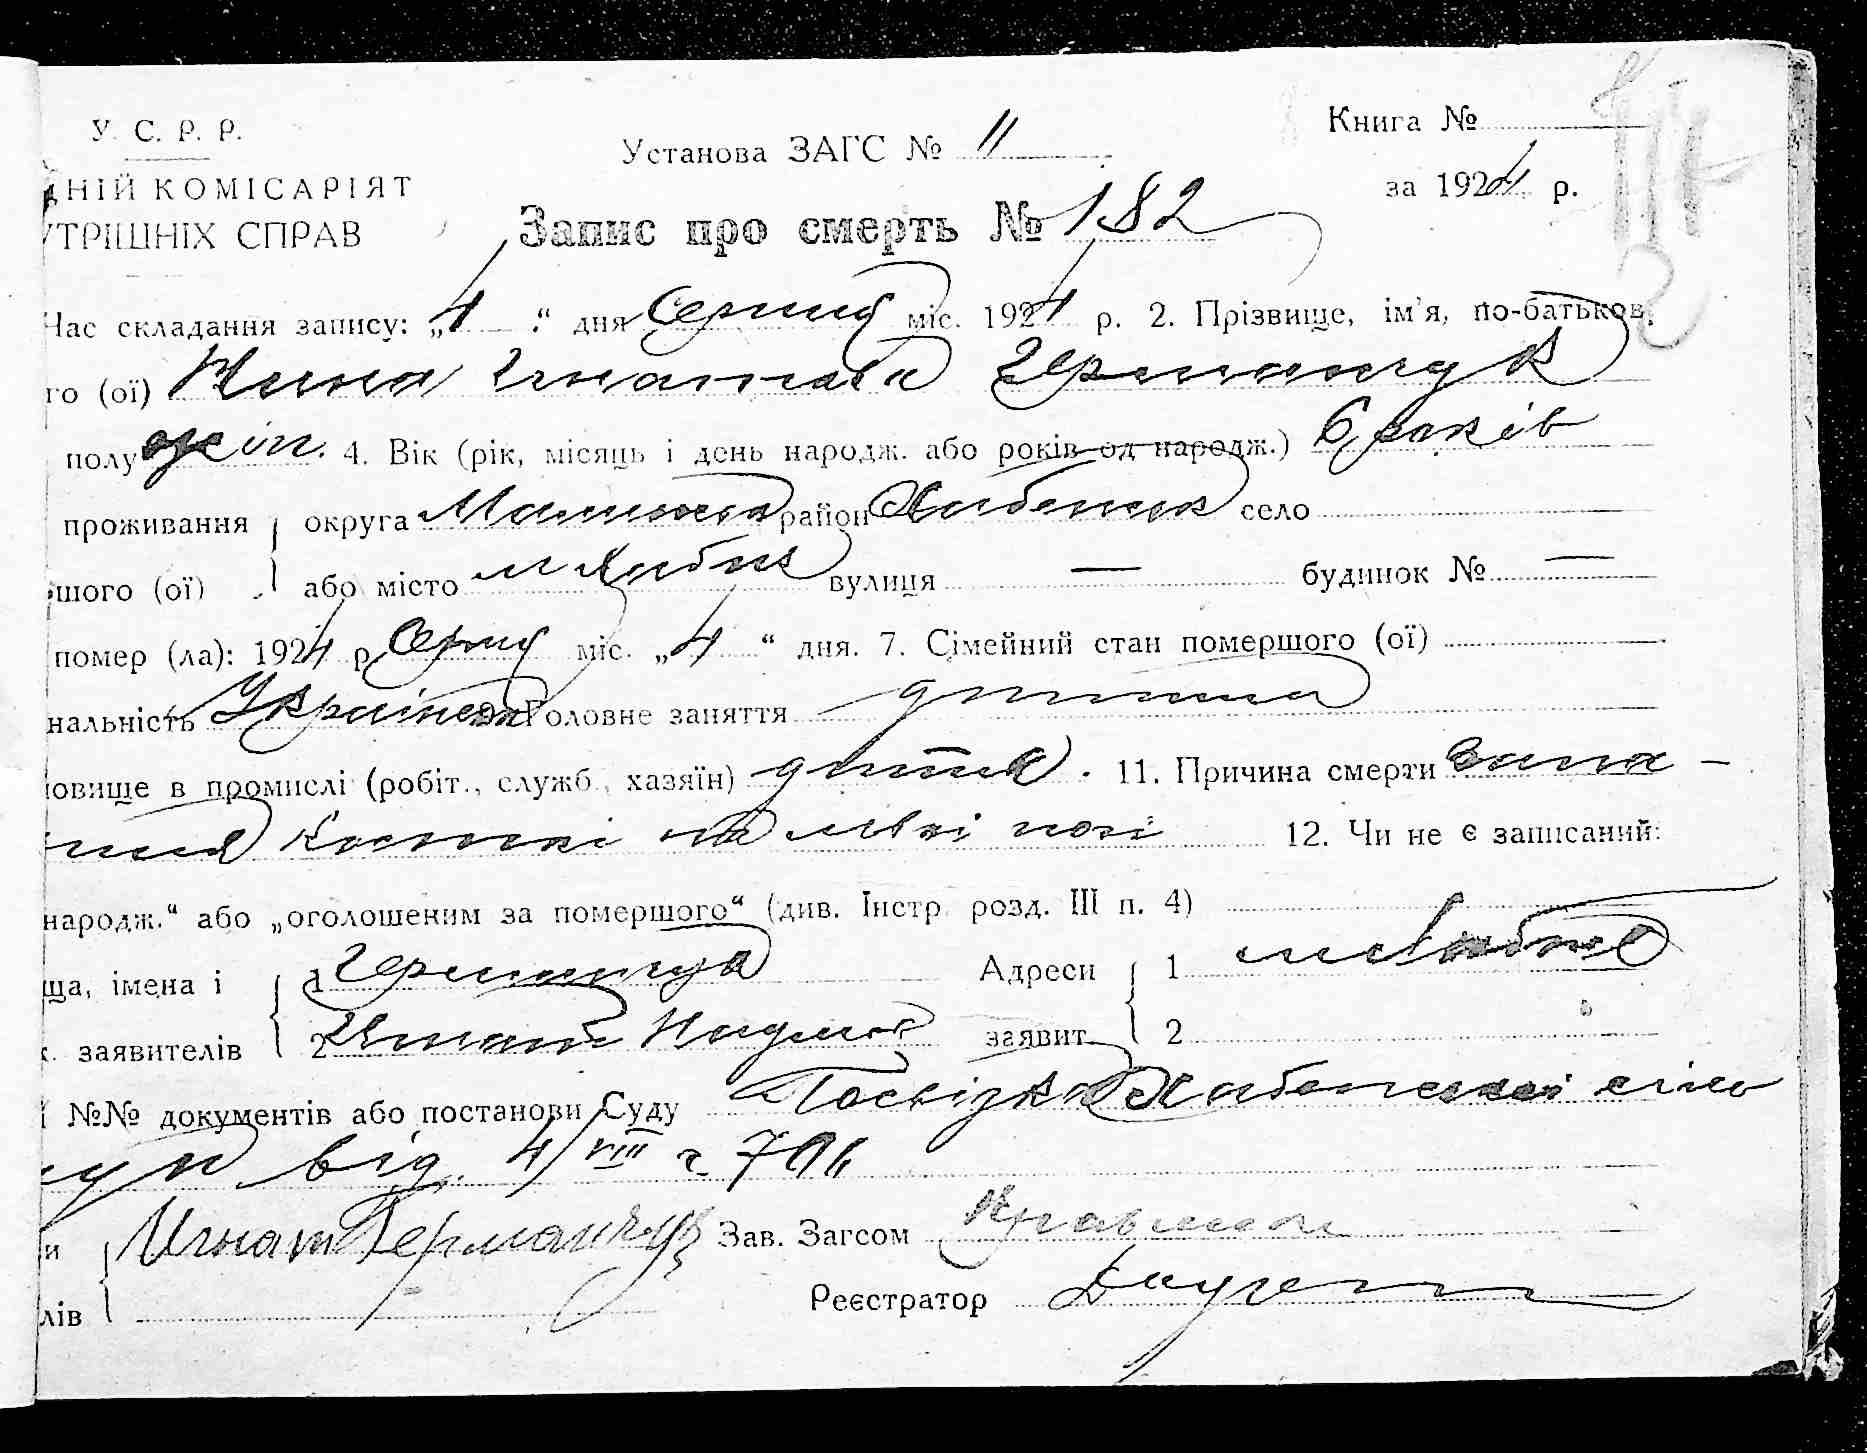 У. С. Р. Р.
Установа ЗАГС № 11
Книга №
ДНІЙ КОМІСАРІЯТ
за 1924 р.
УТРІШНІХ СПРАВ
Запис про смерть № 182
Час складання запису: „4“ дня Серпня міс. 1924 р. 2. Прізвище, ім'я, по-батьков.
го (ої) Ігнатова Германчук
полу жін. 4. Вік (рік, місяць і день народж. або років од народж.) 6 років
проживання округа Малинська район Хабенськ село
шого (ої) або місто м Хабне вулиця — будинок № —
помер (ла): 1924 р Серпня міс. „4“ дня. 7. Сімейний стан помершого (ої)
нальність Українка 9. Головне заняття дитина
овище в промислі (робіт., служб., хазяїн) дитина. 11. Причина смерти запа-
лення на лівій нозі 12. Чи не є записаний:
народж.“ або „оголошеним за помершого“ (див. Інстр. розд. III п. 4)
ща, імена і 1 Германчук Адреси 1 м Хабне
заявителів 2 Ігнат заявит. 2
№№ документів або постанови Суду Посвідка Хабенської сіль
від 4/VIII
и Игнат Германчук Зав. Загсом
лів Реєстратор